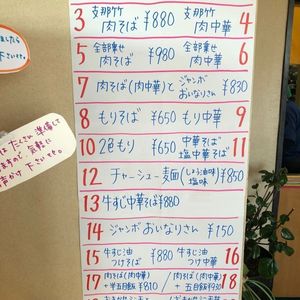 3 支那竹 肉そば ¥880 支那竹 肉中華 4
5 全部乗せ 肉そば ¥980 全部乗せ 肉中華 6
7 肉そば(肉中華)と ジャンボ おいなりさん ¥830
8 もりそば ¥650 もり中華 9
10 2色もり ¥650 中華そば 塩中華そば 11
12 チャーシュー麺(しょうゆ味 塩味) ¥850
13 牛すじ中華そば ¥880
14 ジャンボおいなりさん ¥150
15 牛すじ油 つけそば ¥880 牛すじ油 つけ中華 16
17 肉そば(肉中華) +半玉目飯 ¥810 肉そば(肉中華) +玉目飯 ¥930 18
はたくさん準備して
ますので気軽に
声かけ下さいませ。
ましたら
下さいませ。